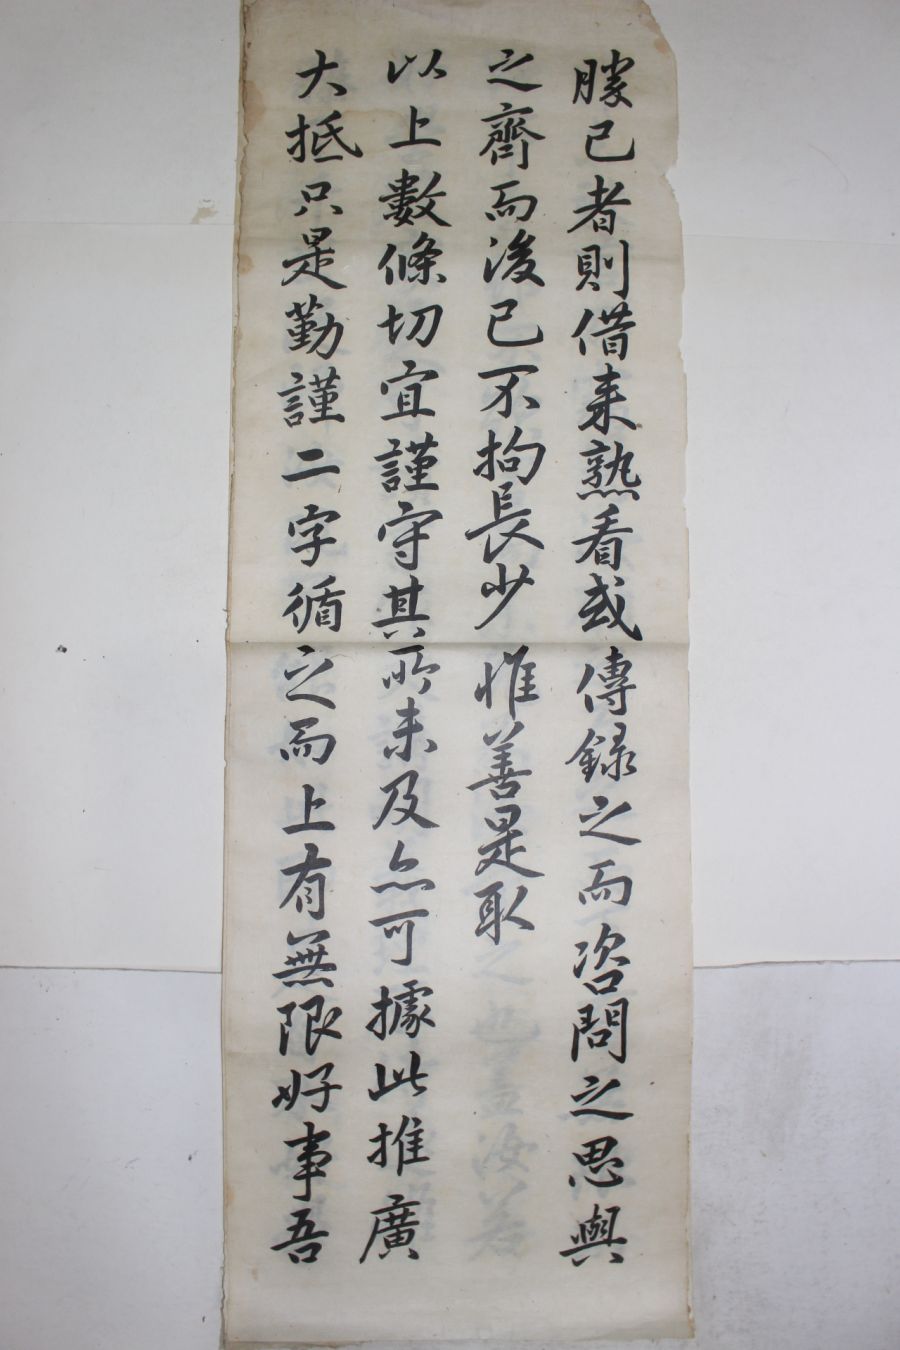 勝已者則借来熟看或傳録之而咨問之思與
之齊而後已不拘長少惟善是取
以上數條切宜謹守其所未及亦可據此推廣
大抵只是勤謹二字循之而上有無限好事吾